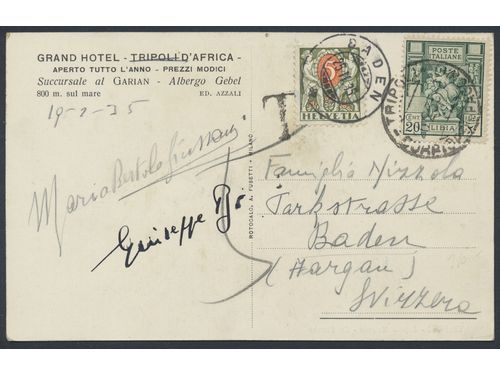 GRAND HOTEL - TRIPOLI D'AFRICA -
APERTO TUTTO L'ANNO - PREZZI MODICI
Succursale al GARIAN - Albergo Gebel
800 m. sul mare ED. AZZALI
19-2-35
5
HELVETIA
BADEN
POSTE
ITALIANE
CENT 20
LIBIA
TRIPOLI
T
Maria Bertola
Giuseppe
ROTOCALO. A. FUSETTI - MILANO
Famiglia Nizzola
Parkstrasse
Baden
(Aargau)
Svizzera